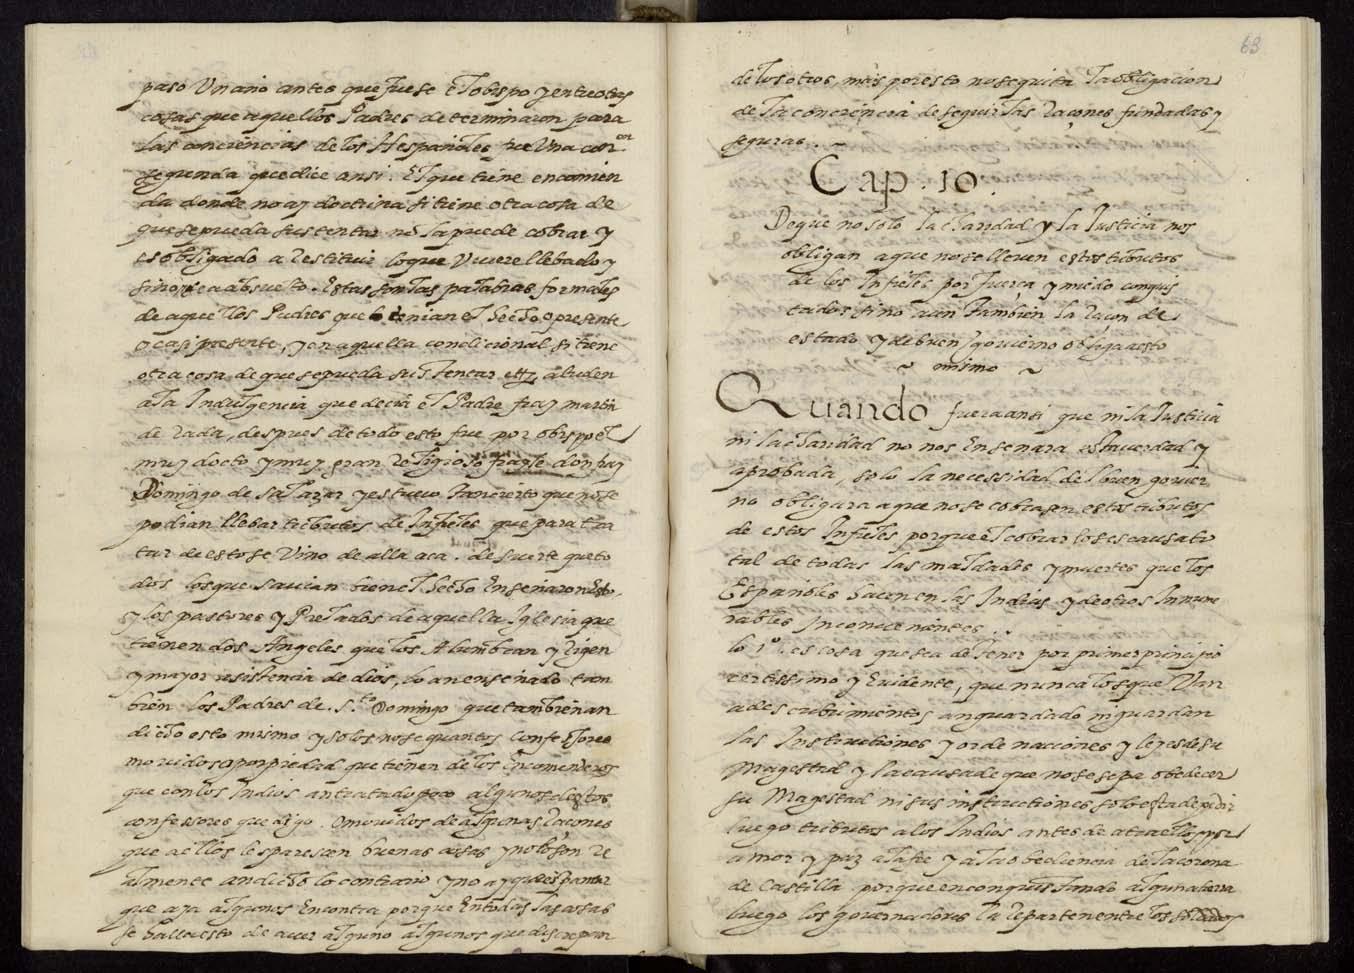 paso Un año antes que fuese el obispo y entre otras
cosas que aquellos Padres determinaron para
las conciencias de los Hespañoles fue Una con con
segunda que dice ansi. El que tiene encomien
da donde no ay doctrina si tiene otra cosa de
que se pueda sustentar no la puede cobrar y
es obligado a restituir lo que Uviere llebado y
sino sea absuelto. Estas son las palabras formales
de aquellos Padres que tenian el hecho presente
o casi presente, y en aquella condicional si tiene
otra cosa de que se pueda sustentar etz aluden
a la Indulgencia que decia el Padre fray martin
de rada, despues de todo esto fue por obispo el
muy docto y muy gran religioso frayle don fray
Domingo de Salazar y estuvo tan cierto que no se
podian llebar tributos de Infieles que para tra
tar de esto se Vino de alla aca. de suerte que to
dos los que savian bien el hecho Enseñaron esto,
y los pastores y Prelados de aquella Iglesia que
tienen dos Angeles que los Alumbran y rigen
y mayor asistencia de dios, lo an enseñado tam
bien los Padres de S.to Domingo que tambien an
dicho esto mismo y solos no se quantos Confesores
movidos por piedad que tienen de los Encomenderos
que con los Indios an tratado poco algunos destos
confesores que digo. O movidos de algunas raçones
que a ellos les parescen buenas aasas y no lo son re
almente an dicho lo contrario y no ay que espantar
que aya algunos En contra porque En todas las cosas
se halla esto de aver alguno algunos que discrepan
63
de los otros, mas por esto no se quita la obligacion
de la conciencia de seguir las raçones fundadas y
seguras.
Cap. 10.
De que no solo la charidad y la Justicia nos
obligan a que no se lleven estos tributos
de los Infieles por fuerça y miedo conquis
tados sino aun tambien la raçon de
estado y de buen govierno obliga a esto
mismo
Quando fuera ansi que ni la Justicia
ni la charidad no nos Enseñara esta verdad y
aprobada, solo la necessidad del buen govier
no obligara a que no se cobrasen estos tributos
de estos Infieles porque el cobrarlos es causa to
tal de todas las maldades y muertes que los
Españoles hacen en las Indias y de otros Innume
rables Inconvenientes.
lo 1º. es cosa que sea de tener por primer principio
certissimo y Evidente, que nunca los que Van
a descubrimientos an guardado ni guardan
las Instructiones y ordenacciones y leyes de su
Magestad y la causa de que no se sepa obedecer
su Magestad ni sus instructiones solo esta de pedir
luego tributos a los Indios antes de atraellos por
amor y paz a la fee y a la obediencia de la corona
de Castilla porque en conquistando alguna tierra
luego los governadores la reparten entre los soldados